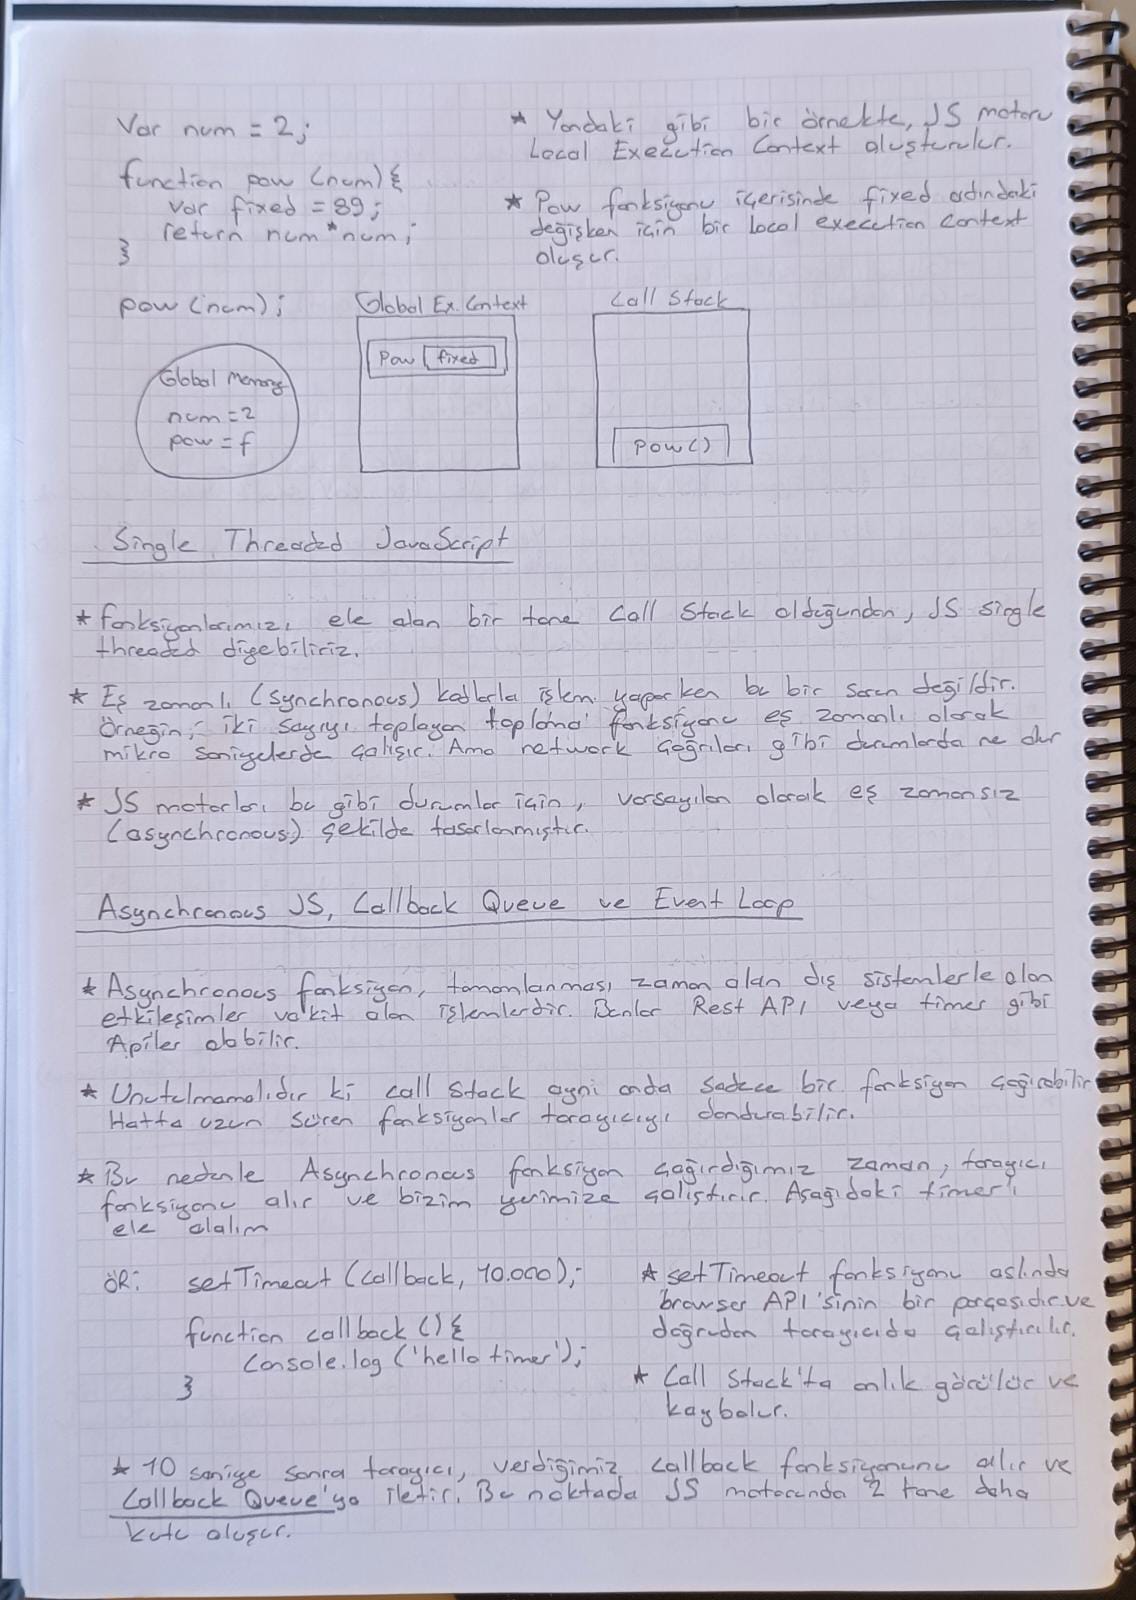 Var num = 2;
function pow (num) {
var fixed = 89;
return num*num;
}
pow (num);
* Yandaki gibi bir örnekte, JS motoru
Local Execution Context oluşturulur.
* Pow fonksiyonu içerisinde fixed adındaki
değişken için bir local execution context
oluşur.
Global Memory
num = 2
pow = f
Global Ex. Context
Pow fixed
Call Stack
Pow()
Single Threaded JavaScript
* fonksiyonlarımızı ele alan bir tane Call Stack olduğundan, JS single
threaded diyebiliriz.
* Eş zamanlı (synchronous) kodlarla işlem yaparken bu bir sorun değildir.
Örneğin; iki sayıyı toplayan toplama fonksiyonu eş zamanlı olarak
mikro saniyelerde çalışır. Ama network çağrıları gibi durumlarda ne olur
* JS motorları bu gibi durumlar için, varsayılan olarak eş zamansız
(asynchronous) şekilde tasarlanmıştır.
Asynchronous JS, Callback Queue ve Event Loop
* Asynchronous fonksiyon, tamamlanması zaman alan dış sistemlerle olan
etkileşimler vakit alan işlemlerdir. Bunlar Rest API veya timer gibi
Apiler olabilir.
* Unutulmamalıdır ki call Stack aynı anda sadece bir fonksiyon çağırabilir
Hatta uzun süren fonksiyonlar tarayıcıyı dondurabilir.
* Bu nedenle Asynchronous fonksiyon çağırdığımız zaman, tarayıcı
fonksiyonu alır ve bizim yerimize çalıştırır. Aşağıdaki timer'ı
ele alalım
ÖR: setTimeout (callback, 10.000);
function callback () {
Console.log ('hello timer');
}
* setTimeout fonksiyonu aslında
browser API'sinin bir parçasıdır ve
doğrudan tarayıcıda çalıştırılır.
* Call Stack'ta anlık görülür ve
kaybolur.
* 10 saniye sonra tarayıcı, verdiğimiz callback fonksiyonunu alır ve
Callback Queue'ya iletir. Bu noktada JS motorunda 2 tane daha
kutu oluşur.